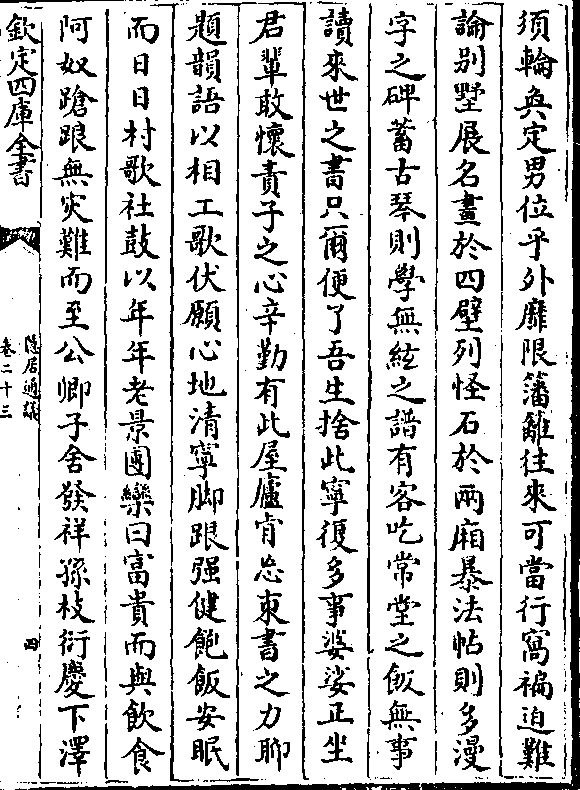 須輪奐定男位乎外靡限籓籬往來可當行窩褊迫難
論别墅展名畫於四壁列怪石於兩廂暴法帖則多漫
字之碑蓄古琴則學無絃之譜有客吃常堂之飯無事
讀來世之書只爾便了吾生捨此寧復多事婆娑正坐
君輩敢懷責子之心辛勤有此屋廬肯忘東書之力聊
題韻語以相工歌伏願心地清寧脚跟强健飽飯安眠
而日日村歌社鼓以年年老景團欒曰富貴而與飲食
阿奴蹌踉無災難而至公卿子舍發祥孫枝衍慶下澤
欽定四庫全書
隱居通議
卷二十三
四